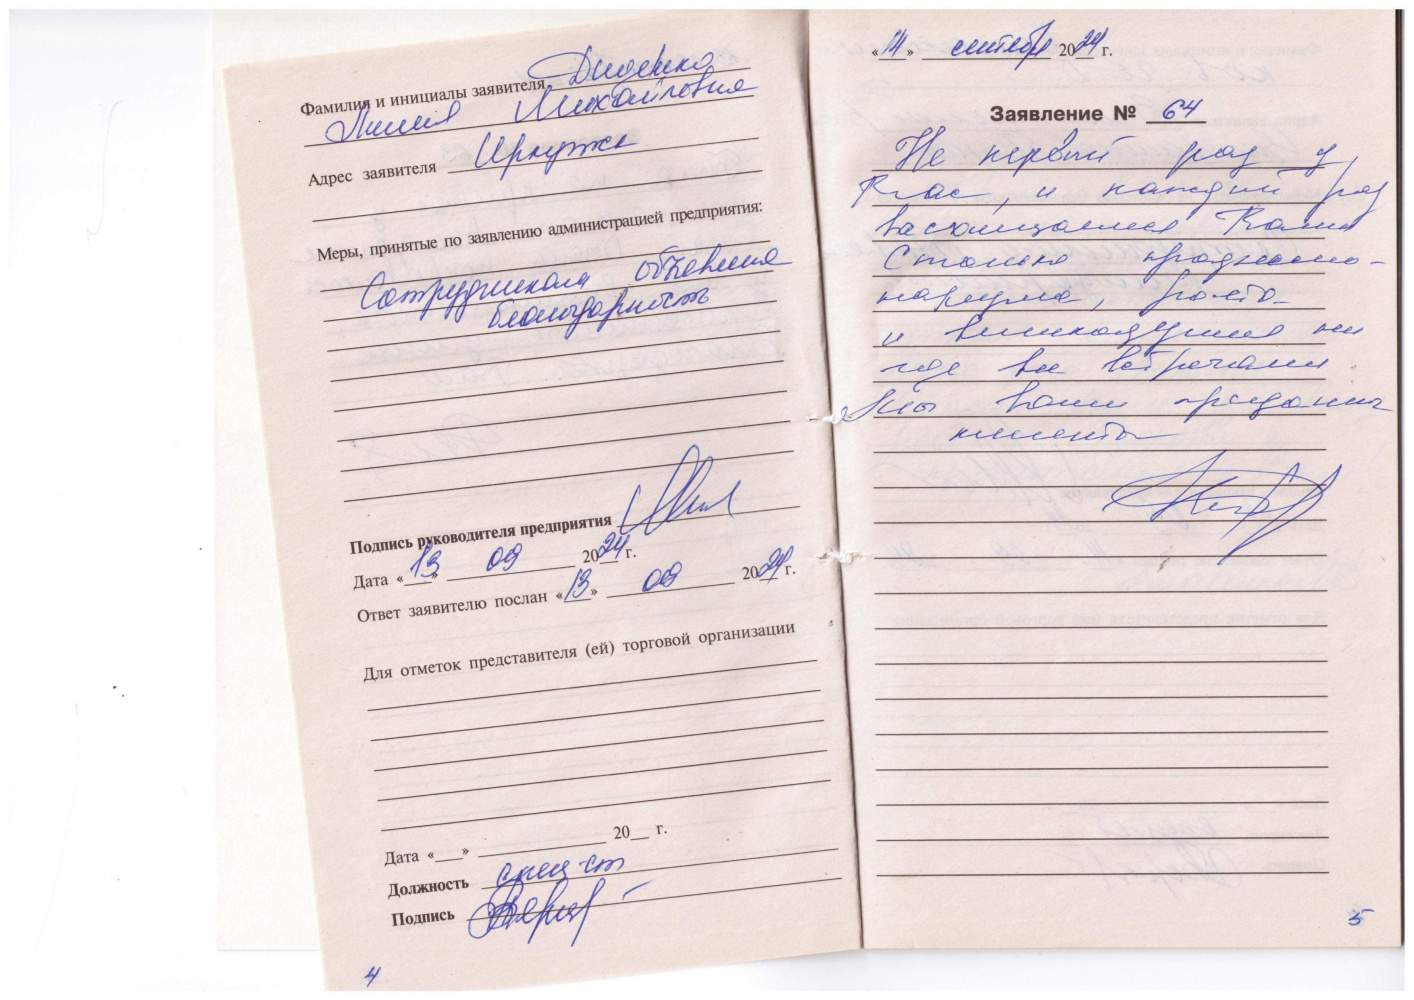 Фамилия и инициалы заявителя Диденко
Лилия Михайловна
Адрес заявителя Иркутск
Меры, принятые по заявлению администрацией предприятия:
Сотрудникам объявлена
благодарность
Подпись руководителя предприятия
Дата «13» 09 2024 г.
Ответ заявителю послан «13» 09 2024 г.
Для отметок представителя (ей) торговой организации
Дата «___» 20__ г.
Должность спец-ст
Подпись
4
«11» сентября 2024 г.
Заявление № 64
Не первый раз у
Вас, и каждый раз
восхищаемся Вами
Столько
и великодушия ни
где не встречали
Мы ваши преданные
клиенты
5